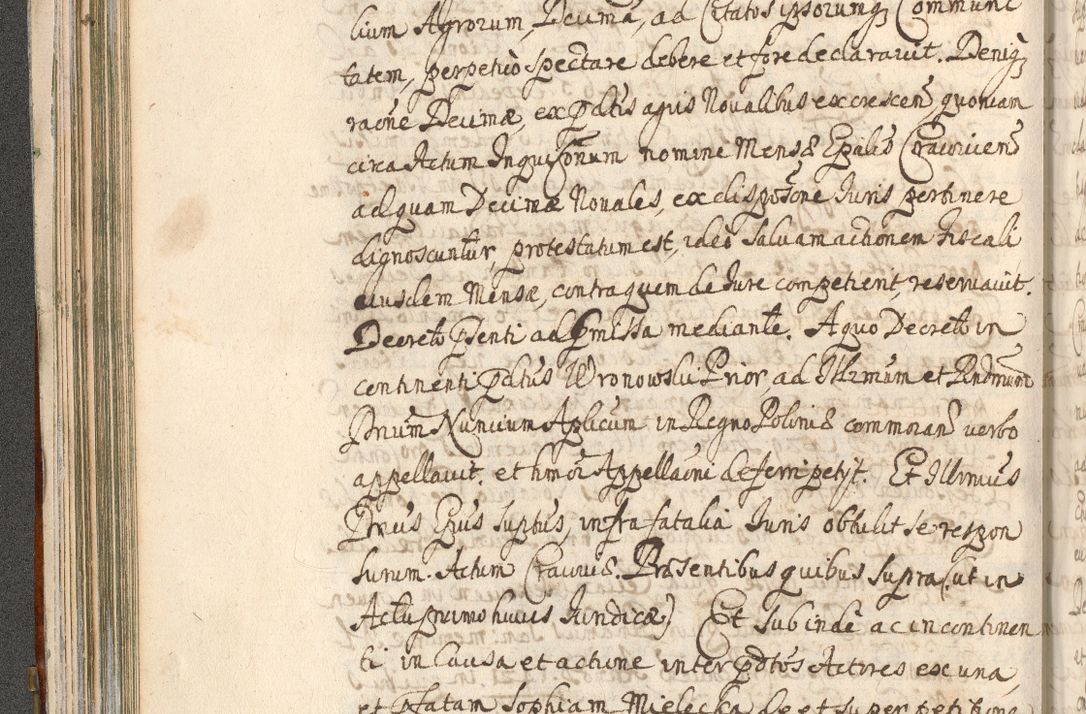 lium Agrorum, Decima, ad Citatos ipsorumq₃ Communi
tatem, perpetuò spectare debere et fore declaravit. Deniq₃
raõne Decimæ, ex pdtis agris Novalibus excrescen̄ quoniam
circa Actum Inquisõnum nomine Mensæ Epalis Cracovien̄
ad quam Decimæ Novales, ex disposõne Iuris pertinere
dignoscuntur, protestatum est, ideo salvam actionem Fiscali
eiusdem Mensæ, contra quem de Iure competierit, reservavit.
Decreto pnti ad pmissa mediante. A quo Decreto in
continenti pdtus Wronowski Prior ad Illrmum et Rndmum
Dnum Nuncium Aplicum in Regno Poloniæ commoran̄ verbo
appellavit. et hmõi Appellaõni deferri petijt. Et Illrmus
Dnus Epus suptus, infra fatalia Iuris obtulit se respon
surum. Actum Cracoviæ. Præsentibus quibus supra (ut in
Actu primo huius Iuridicæ) Et subinde ac in continen
ti in Causa et actione inter pdtos Actores ex una,
et pfatam Sophiam Mielecka de et super petitione